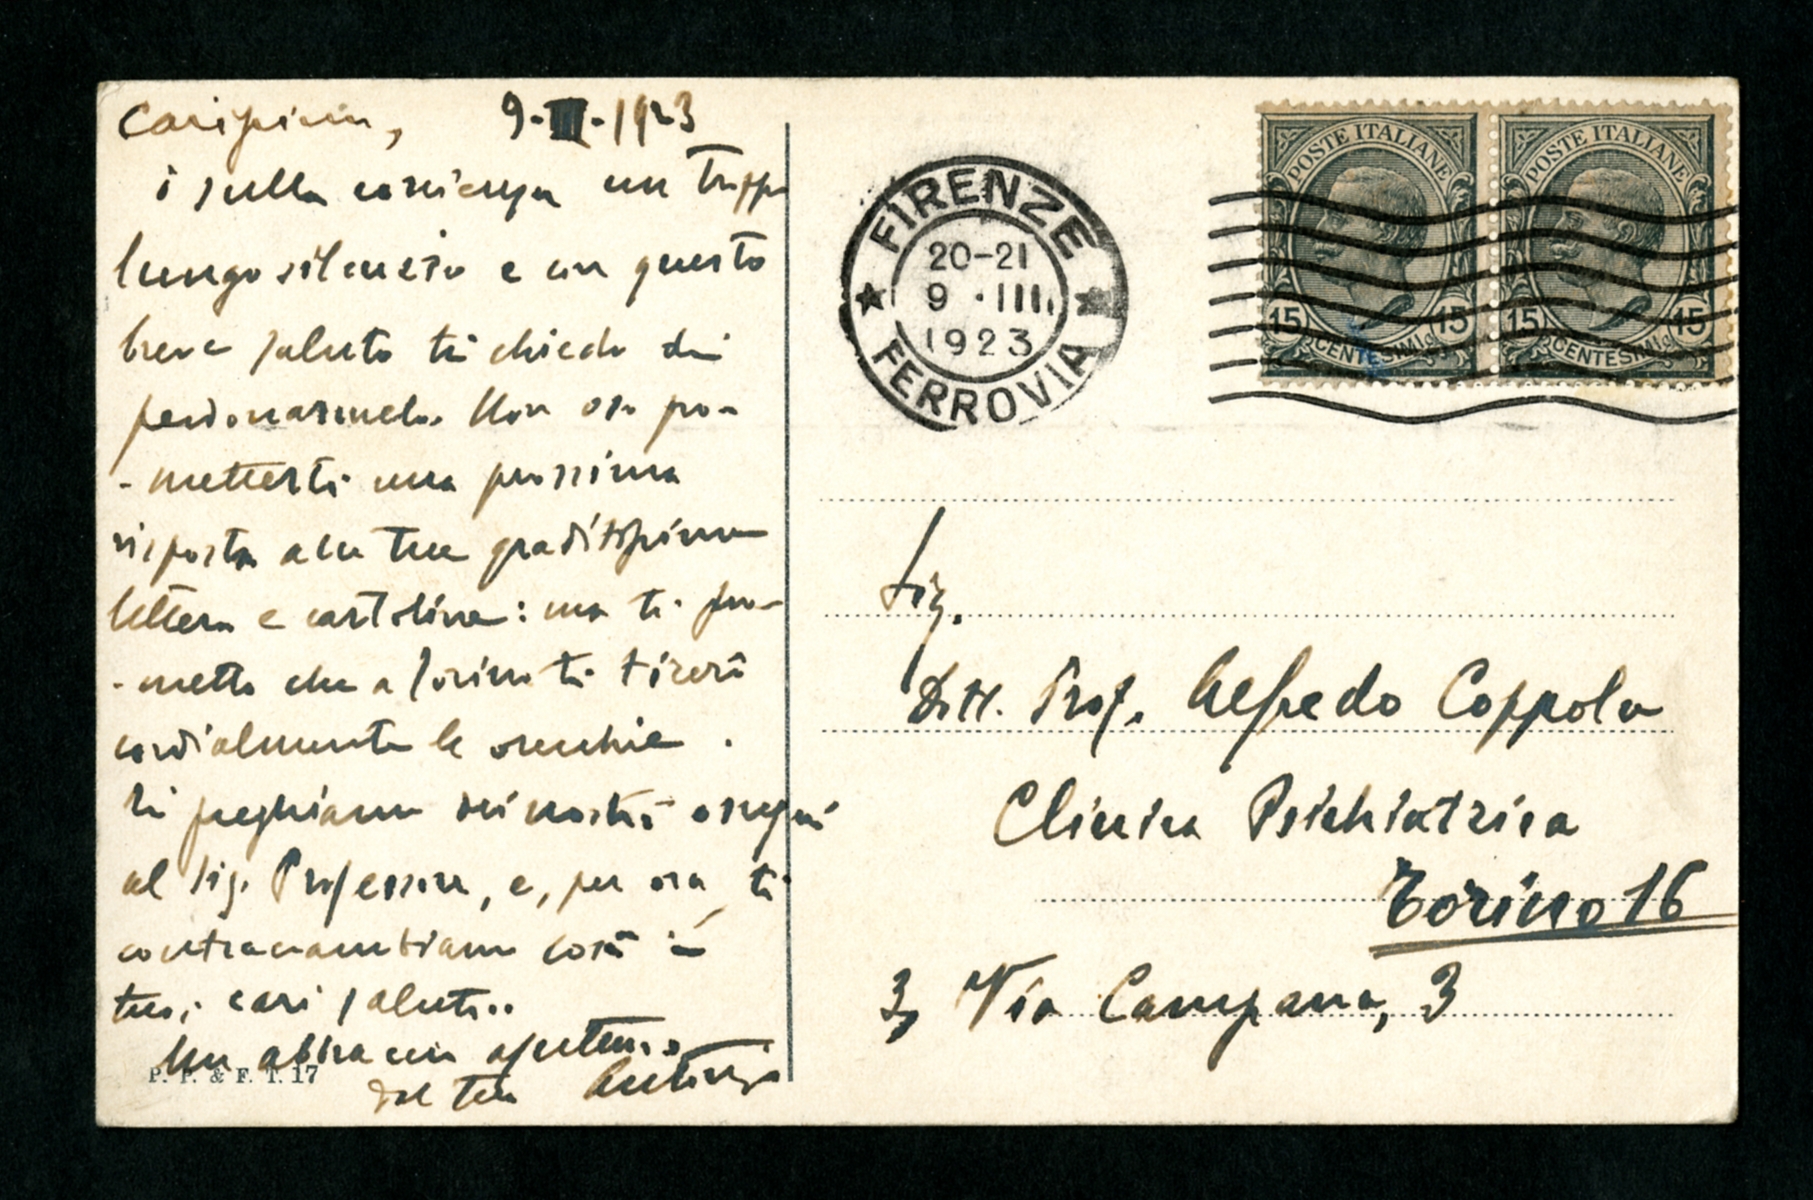 Carissimo, 9-III-1923
ò sulla coscienza un troppo
lungo silenzio e con questo
breve saluto ti chiedo di
perdonarmelo. Non oso pro-
-metterti una prossima
risposta alle tue graditissime
lettera e cartoline: ma ti pro-
-metto che a Torino ti tirerò
cordialmente le orecchie.
Ti preghiamo dei nostri ossequi
al Sig. Professore, e, per ora, ti
contraccambiamo così i
tuoi cari saluti..
Un abbraccio affettuoso
dal tuo
P. F. & F. T. 17
FIRENZE
20-21
9 · III.
1923
FERROVIA
POSTE ITALIANE
15 CENTESIMI 15
POSTE ITALIANE
15 CENTESIMI 15
Sig.
Dott. Prof. Alfredo Coppola
Clinica Psichiatrica
Torino 16
3, Via Campana, 3